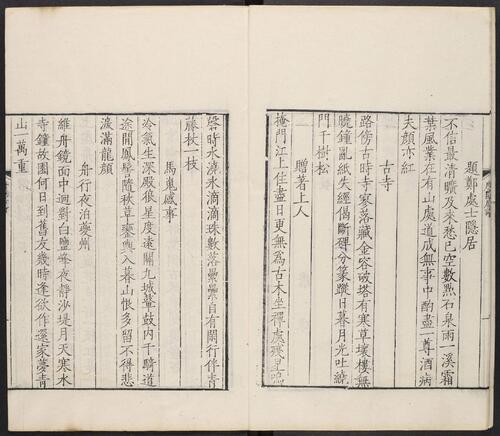 題鄭處士隱居
不信最清曠及來愁已空數點石泉雨一溪霜
葉風業在有山處道成無事中酌盡一尊酒病
夫顏亦紅
古寺
路傍古時寺寥落藏金容破塔有寒草壞樓無
曉鐘亂紙失經偈斷碑分篆蹤日暮月光吐繞
門千樹松
贈著上人
掩門江上住盡日更無爲古木坐禪處殘星鳴
磬時水澆冰滴滴珠數落纍纍自有閑行伴青
藤杖一枝
馬嵬感事
冷氣生深殿狼星度遠關九城鼙鼓內千騎道
途間鳳髻隨秋草鸞輿入暮山恨多留不得悲
淚滿龍顏
舟行夜泊夔州
維舟鏡面中迥對白鹽峯夜靜沙堤月天寒水
寺鐘故園何日到舊友幾時逢欲作還家夢青
山一萬重